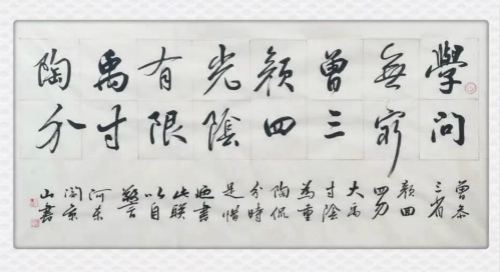 學問
無窮
曾三
顏四
光陰
有限
禹寸
陶分
曾參
三省
顏回
四勿
大禹
寸陰
為重
陶侃
分時
是惜
書
此聯
以自
警
河東
閻京
山書